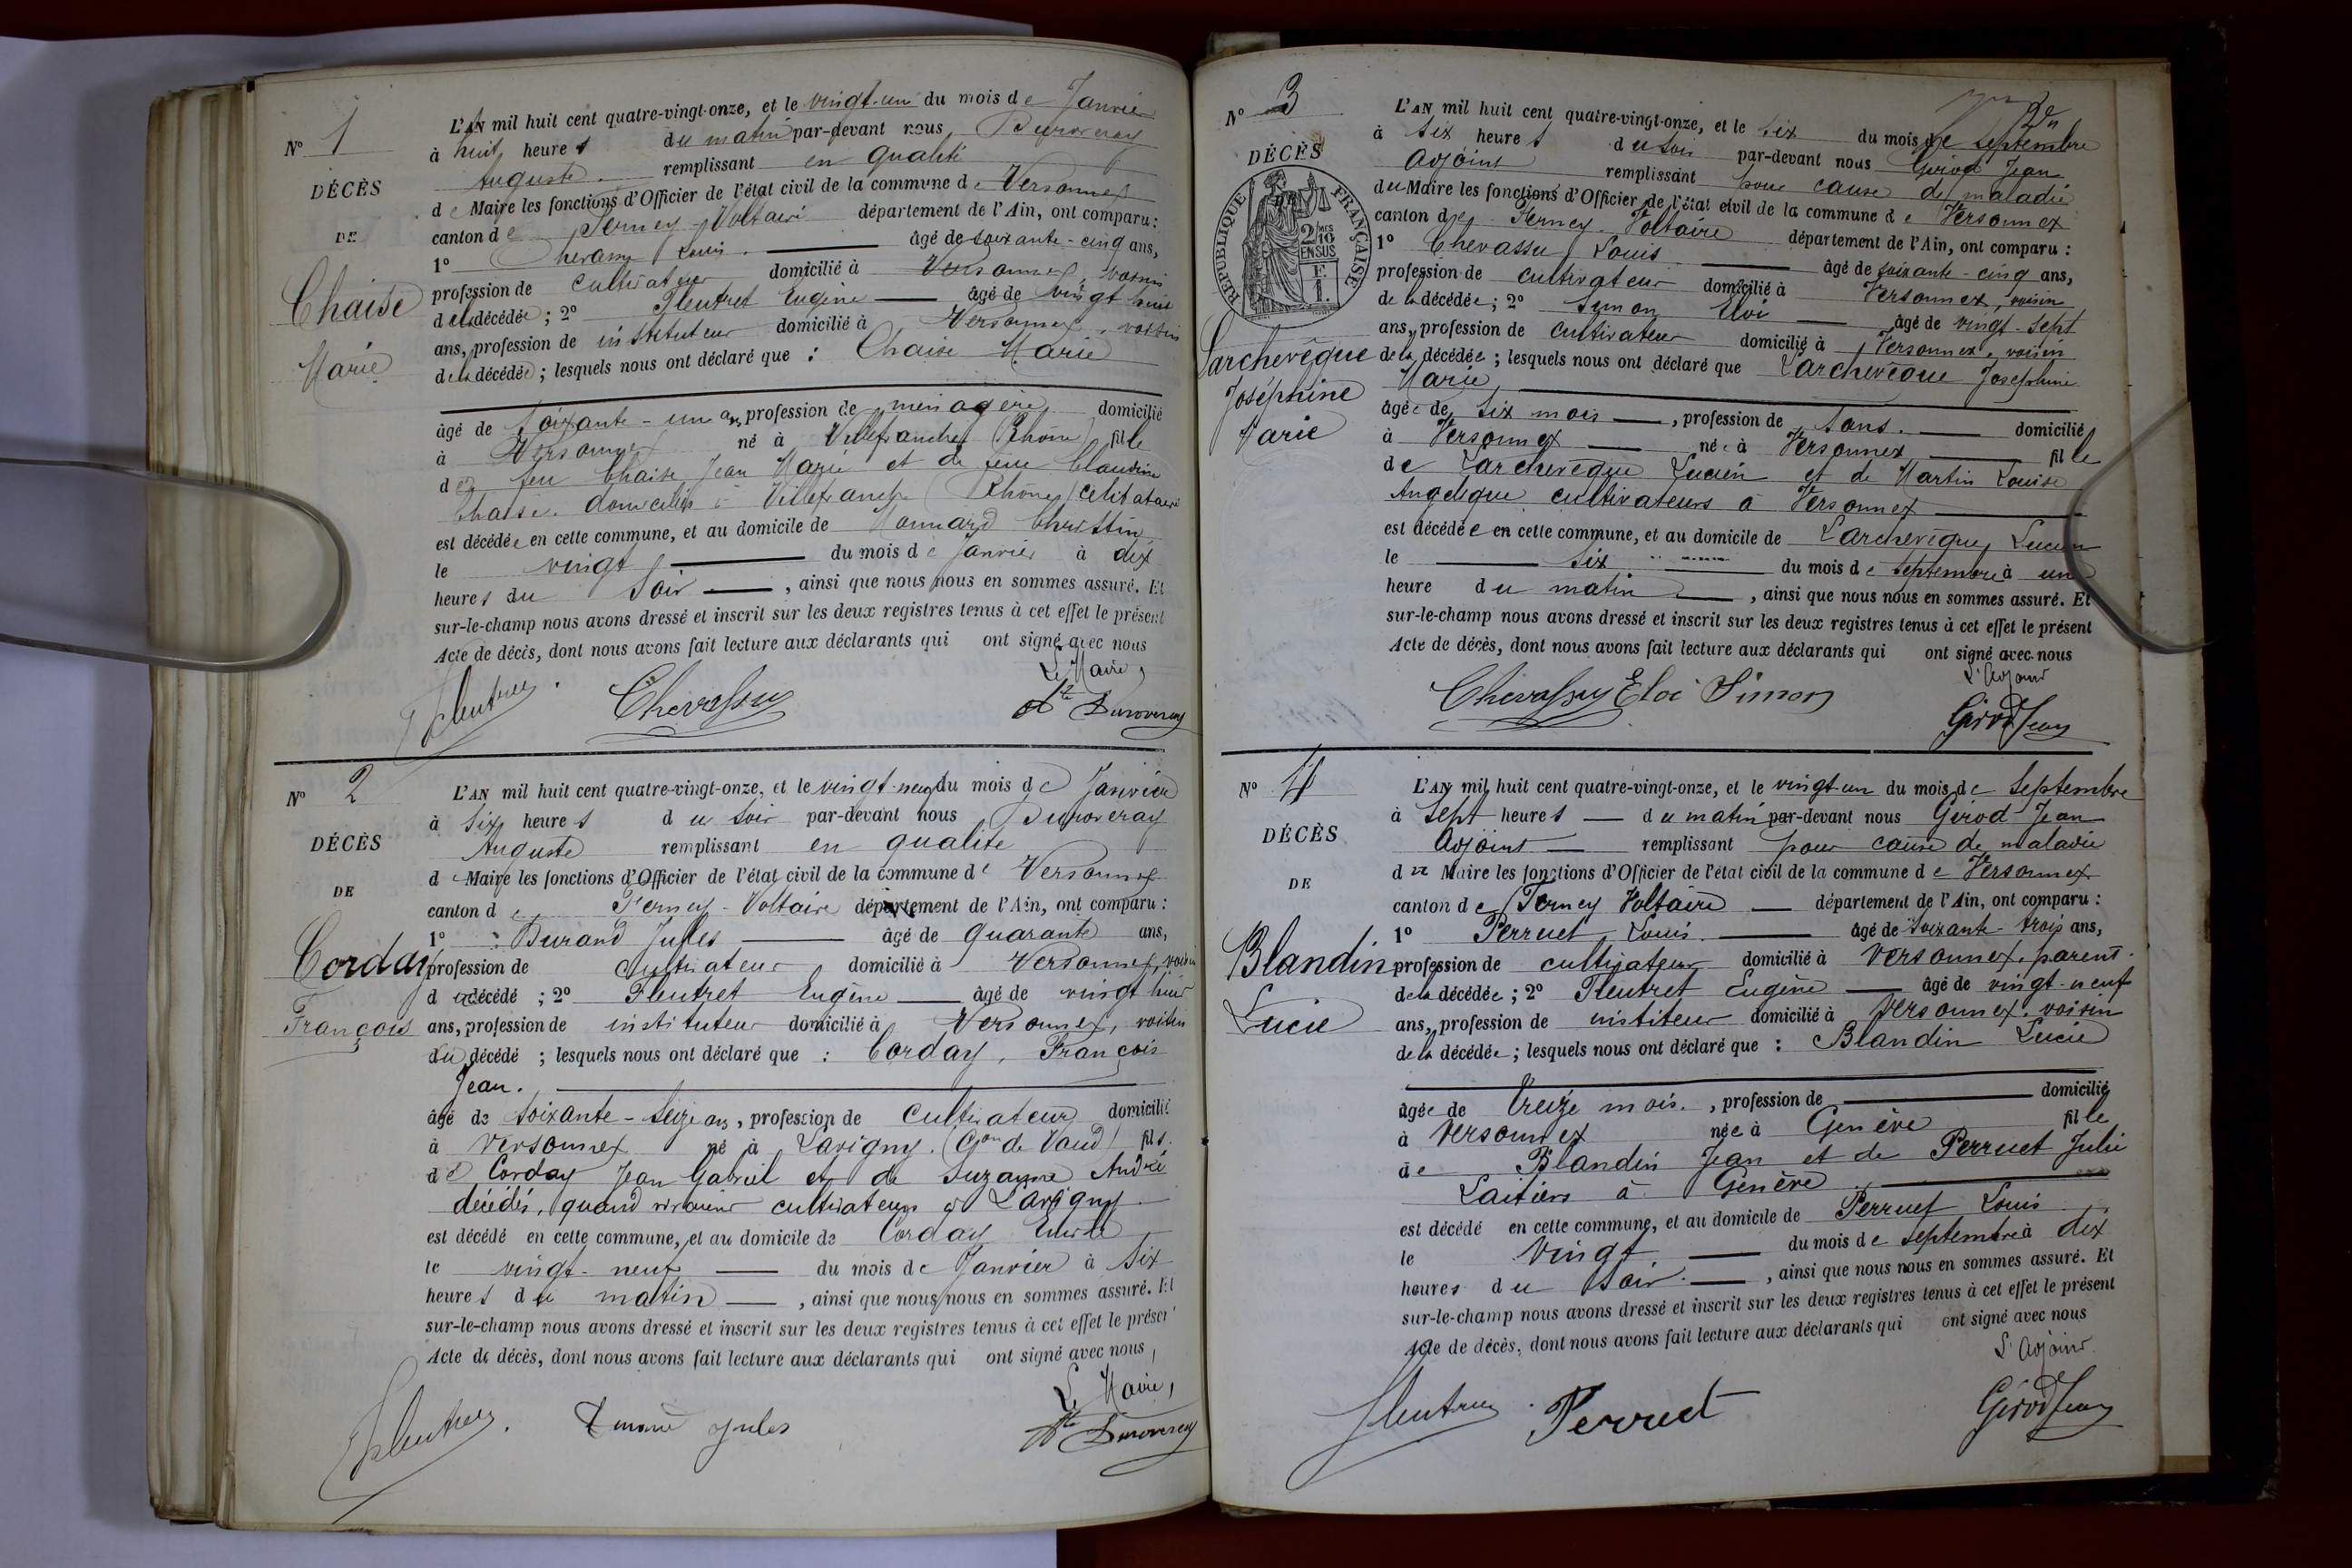 N° 1
DÉCÈS
DE
Chaise
Marie
L'AN mil huit cent quatre-vingt-onze, et le vingt-un du mois de Janvier
à huit heures du matin par-devant nous Duroveray
Auguste remplissant en qualité
de Maire les fonctions d'Officier de l'état civil de la commune de Versonnex
canton de Ferney-Voltaire département de l'Ain, ont comparu :
1° Chevassu Louis âgé de soixante-cinq ans,
profession de cultivateur domicilié à Versonnex, voisin
de la décédée ; 2° Fleutret Eugène âgé de vingt huit
ans, profession de instituteur domicilié à Versonnex, voisin
de la décédée ; lesquels nous ont déclaré que : Chaise Marie
âgé de soixante-un ans, profession de ménagère domicilié
à Versonnex né à Villefranche (Rhône) fille
de feu Chaise Jean Marie et de feue Claudine
Chaise. domiciliés à Villefranche (Rhône) célibataire
est décédée en cette commune, et au domicile de Monnard Christin
le vingt du mois de Janvier à dix
heures du soir, ainsi que nous nous en sommes assuré. Et
sur-le-champ nous avons dressé et inscrit sur les deux registres tenus à cet effet le présent
Acte de décès, dont nous avons fait lecture aux déclarants qui ont signé avec nous
Le Maire,
Fleutret Chevassu Duroveray
N° 2
DÉCÈS
DE
Corday
François
L'AN mil huit cent quatre-vingt-onze, et le vingt-neuf du mois de Janvier
à six heures du soir par-devant nous Duroveray
Auguste remplissant en qualité
de Maire les fonctions d'Officier de l'état civil de la commune de Versonnex
canton de Ferney-Voltaire département de l'Ain, ont comparu :
1° : Durand Jules âgé de quarante ans,
profession de cultivateur domicilié à Versonnex, voisin
du décédé ; 2° Fleutret Eugène âgé de vingt huit
ans, profession de instituteur domicilié à Versonnex, voisin
du décédé ; lesquels nous ont déclaré que : Corday, François
Jean.
âgé de soixante-seize ans, profession de cultivateur domicilié
à Versonnex né à Lavigny. (Cton de Vaud) fils
de Corday Jean Gabriel et de Suzanne André
décédés, quand vivaient cultivateurs à Lavigny
est décédé en cette commune, et au domicile de Corday Emile
le vingt-neuf du mois de Janvier à six
heures du matin, ainsi que nous nous en sommes assuré. Et
sur-le-champ nous avons dressé et inscrit sur les deux registres tenus à cet effet le présent
Acte de décès, dont nous avons fait lecture aux déclarants qui ont signé avec nous,
Le Maire,
Fleutret. Durand Jules Duroveray
N° 3
DÉCÈS
DE
RÉPUBLIQUE FRANÇAISE
2/10
EN SUS
Larchevêque
Joséphine
Marie
L'AN mil huit cent quatre-vingt-onze, et le six du mois de Septembre
à six heures du soir par-devant nous Girod Jean
adjoint remplissant pour cause de maladie
du Maire les fonctions d'Officier de l'état civil de la commune de Versonnex
canton de Ferney-Voltaire département de l'Ain, ont comparu :
1° Chevassu Louis âgé de soixante-cinq ans,
profession de cultivateur domicilié à Versonnex, voisin
de la décédée ; 2° Simon Eloi âgé de vingt-sept
ans, profession de cultivateur domicilié à Versonnex, voisin
de la décédée ; lesquels nous ont déclaré que Larchevêque Joséphine
Marie
âgée de six mois, profession de sans. domicilié
à Versonnex née à Versonnex fille
de Larchevêque Lucien et de Martin Louise
Angelique cultivateurs à Versonnex
est décédée en cette commune, et au domicile de Larchevêque Lucien
le six du mois de Septembre à une
heure du matin, ainsi que nous nous en sommes assuré. Et
sur-le-champ nous avons dressé et inscrit sur les deux registres tenus à cet effet le présent
Acte de décès, dont nous avons fait lecture aux déclarants qui ont signé avec nous
L'Adjoint
Chevassu Eloi Simon Girod Jean
N° 4
DÉCÈS
DE
Blandin
Lucie
L'AN mil huit cent quatre-vingt-onze, et le vingt-un du mois de Septembre
à sept heures du matin par-devant nous Girod Jean
adjoint remplissant pour cause de maladie
du Maire les fonctions d'Officier de l'état civil de la commune de Versonnex
canton de Ferney Voltaire département de l'Ain, ont comparu :
1° Perruet Louis âgé de soixante-trois ans,
profession de cultivateur domicilié à Versonnex, parent
de la décédée ; 2° Fleutret Eugène âgé de vingt-neuf
ans, profession de institeur domicilié à Versonnex, voisin
de la décédée ; lesquels nous ont déclaré que : Blandin Lucie
âgée de treize mois, profession de domicilié
à Versonnex née à Genève fille
de Blandin Jean et de Perruet Julie
Laitiers à Genève
est décédé en cette commune, et au domicile de Perruet Louis
le vingt du mois de septembre à dix
heures du soir, ainsi que nous nous en sommes assuré. Et
sur-le-champ nous avons dressé et inscrit sur les deux registres tenus à cet effet le présent
Acte de décès, dont nous avons fait lecture aux déclarants qui ont signé avec nous
L'Adjoint
Fleutret Perruet Girod Jean